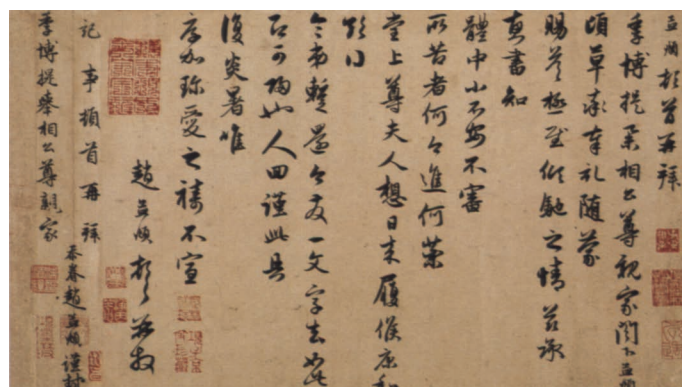 孟頫頓首再拜
季博提舉相公尊親家閣下孟頫
頃草率奉札隨蒙
賜答極至傾馳之情茲承
真書知
體中小不安不審
所苦者何今進何藥
堂上尊夫人想日來履候康和
令弟蹔還今友一文字去如此
否可陶山人回謹此具
復炎暑唯
厚加珍愛之禱不宣
趙孟頫頓首再拜
記事頓首再拜
季博提舉相公尊親家
忝眷趙孟頫謹封